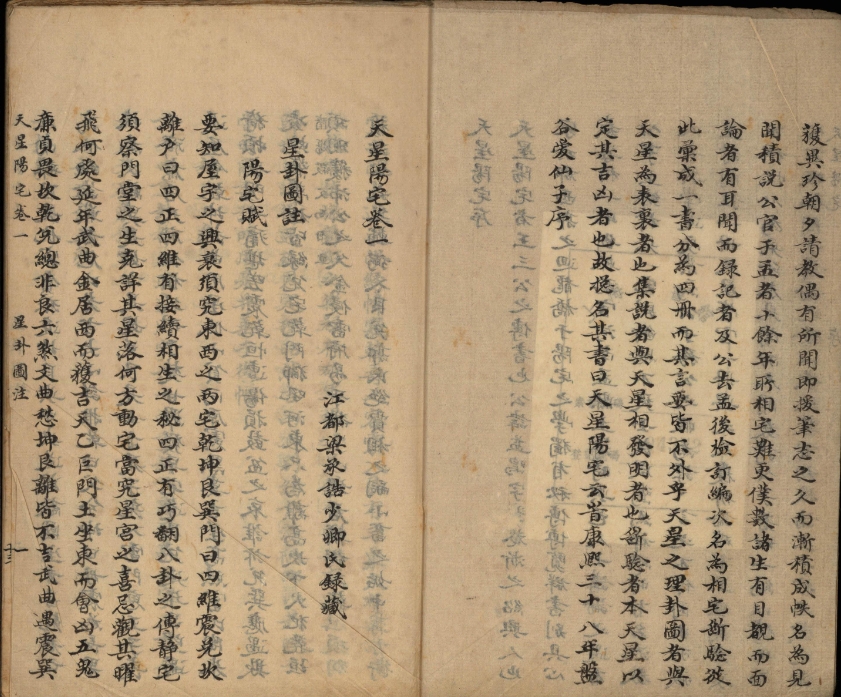 獲異珍朝夕請教偶有所聞即援筆志之久而漸積成帙名為見
聞積說公官于孟者十餘年所相宅難更僕數諸生有目覩而面
論者有耳聞而錄記者及公去孟後檢訂編次名為相宅斷驗彼
此彙成一書分為四冊而其言要皆不外乎天星之理卦圖者與
天星為表裏者也集說者與天星相發明者也斷驗者本天星以
定其吉凶者也故總名其書曰天星陽宅云旹康熙三十八年盤
谷愛仙子序
天星陽宅卷一
江都梁承誥少卿氏錄藏
星卦圖註
陽宅賦
要知屋宇之興衰須究東西之兩宅乾坤艮巽門曰四維震兌坎
離户曰四正四維有接續相生之秘四正有巧翻八卦之傳靜宅
須察門堂之生尅詳其星落何方動宅當究星宮之喜忌觀其曜
飛何處延年武曲金居西而獲吉天乙巨門土坐東而會凶五鬼
廉貞畏坎乾兌總非良六煞文曲愁坤艮離皆不吉武曲遇震巽
天星陽宅卷一
星卦圖注
一